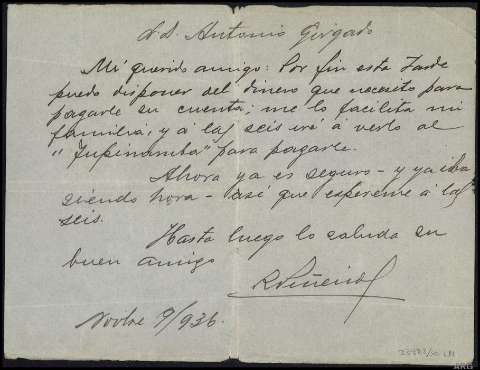 Sr. D. Antonio Gingado
Mi querido amigo: Por fin esta tarde
puedo disponer del dinero que necesito para
pagarle su cuenta; me lo facilita mi
familia, y á las seis iré á verlo al
"Tupinamba" para pagarle.
Ahora ya es seguro - y ya iba
siendo hora - así que espereme á las
seis.
Hasta luego lo saluda su
buen amigo
R Piñeiro
Novbre 9/936.
ARG